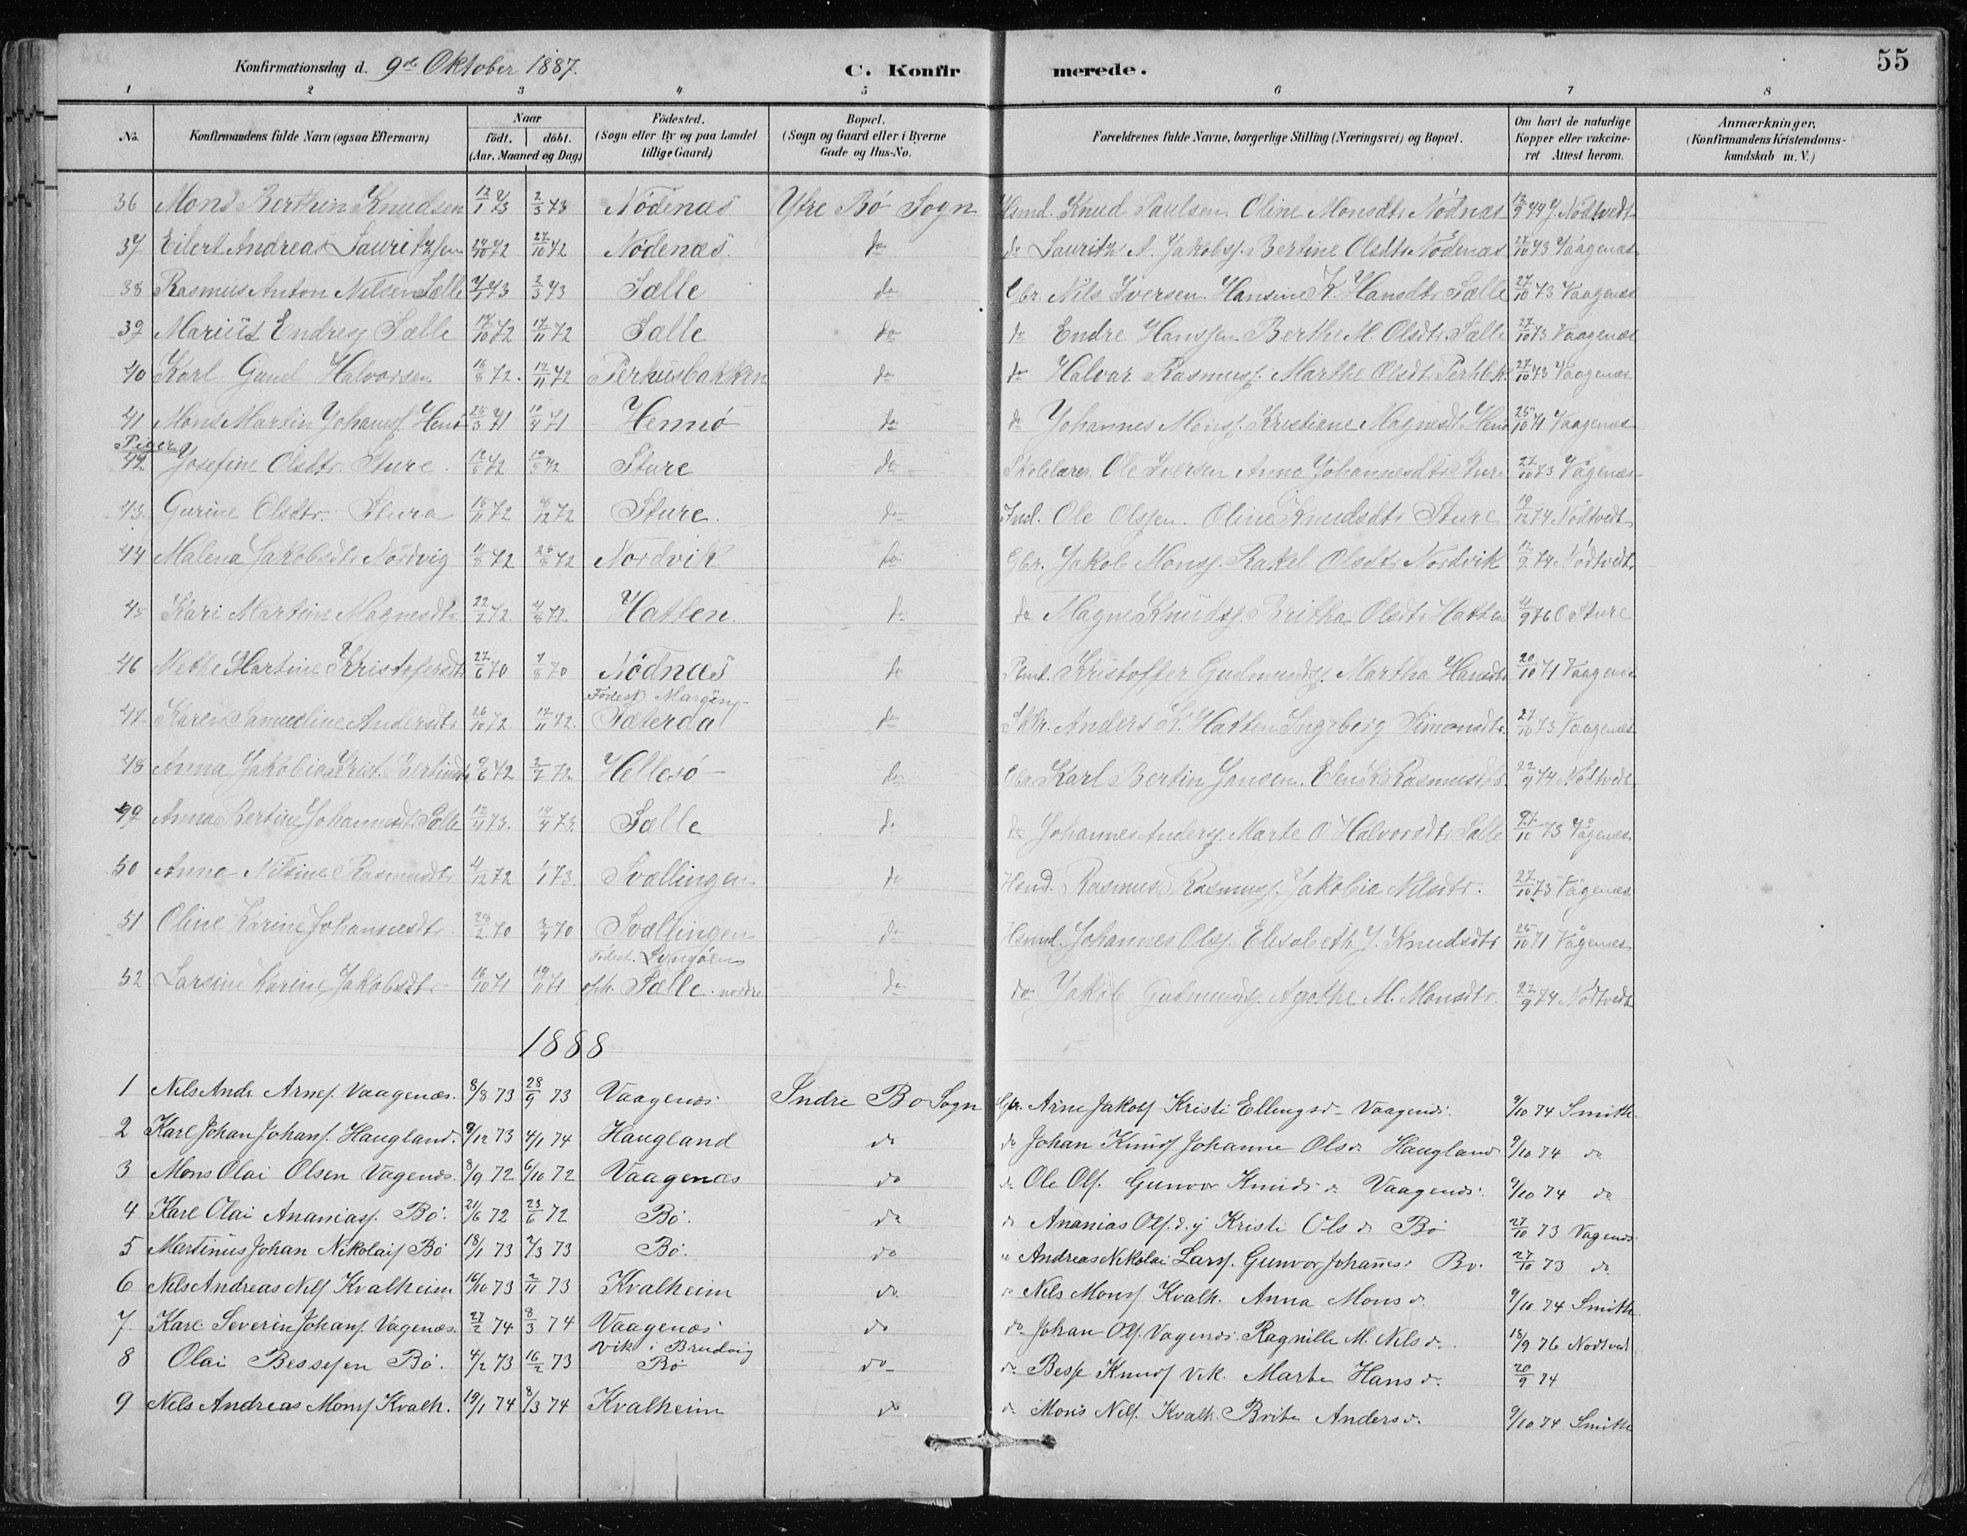 55
Konfirmationsdag d. 9de Oktober 1887.
C. Konfirmerede.
1 2 3 4 5 6 7 8
No. Konfirmandens fulde Navn (ogsaa Efternavn) Naar født. døbt. (Aar, Maaned og Dag) Fødested. (Sogn eller By og paa Landet tillige Gaard) Bopæl. (Sogn og Gaard eller i Byerne Gade og Hus-No. Forældrenes fulde Navne, borgerlige Stilling (Næringsvei) og Bopæl. Om havt de naturlige Kopper eller vakcineret Attest herom. Anmærkninger, (Konfirmandens Kristendomskundskab m. V.)
36 Mons Berthin Knudsen 12/1 73 2/3 73 Nödenæs Ytre Bö Sogn Hsmd. Knud Paulsen Oline Monsdtr Nödnæs 12/9 74 J. Nödtvedt
37 Eilert Andreas Lauritzsen 24/10 72 27/10 72 Nödenæs. do do Lauritz A. Jakobs. Bertine Olsdtr Nödenæs 27/10 73 Vaagenæs
38 Rasmus Anton Nilsen Sælle 73 2/3 73 Sælle do Gbr. Nils Iversen Hansine K. Hansdtr Sælle 27/10 73 Vaagenæs
39 Mariüs Endresj Sælle 14/10 72 17/11 72 Sælle do do Endre Hanssen Berthe M. Olsdtr Sælle 27/10 73 Vaagenæs
40 Karl Gunel Halvorsen 16/8 72. 17/11 72 Perhusbakken do do Halvar Rasmuss. Marthe Olsdtr Perhbk. 27/10 73 Vaagenæs
41 Mons Martin Johannes. Henö 25/3 71 10/4 71 Hennö do do Johannes Monss. Kristiane Magnesdt. Henö 25/10 71 Vaagenæs
Piger
42 Josefine Olsdtr Sture. 72 72 Sture do Skolelærer. Ole Iversen Anna Johannesdtr Sture 27/10 73 Vågenæs
43. Gurine Olsdtr Stura 16/11 72 8/12 72 Sture. do Insl. Ole Olssen. Oline Knudsdtr Sture 19/12 74 Nödtvedt
44 Malena Jakobsdtr Nordvig 11/8 72 25/8 72 Nordvik do Gbr. Jakob Monss. Rakel Olsdtr Nordvik 12/9 74 Nödtvedt
45 Kari Martine Magnesdtr 22/7 72 4/8 72. Hatten. do do Magne Knudss. Britha Olsdtr Hatten 9 76 O Sture
46 Mette Martine Kristofersdtr 27/6 70 7/8 70 Nödnæs do Kristoffer Gudmunds. Martha Hansdtr 20/10 71 Vaagenæs
47. Karen Samueline Andersdtr 26/10 72 17/11 72. Sæterdal do Anders K. Hatten Ingeborg Simonsdtr. 27/10 73 Vaagenæs
48 Anna Jakobia Krist. Bertinsdtr 9/6 72 2/7 72. Hellesö do Gbr Karl Bertin Jansen. Elen Rasmusdtr. 22/9 74 Nödtvedt
49 Anna Bertine Johannesdtr Sælle 73. 14/4 73. Sælle do do Johannes Anders. Marte O Halvorsdtr Sælle 73 Vågenæs
50 Anna Nilsine Rasmusdtr 4/12 72 1/1 73. Svællingen do Hsmd. Rasmus Rasmuss. Jakobia Nilsdtr. 27/10 73 Vågenæs
51 Oline Karine Johannesdtr 28/2 70 3/4 70 Svællingen do Hsmd. Johannes Olss. Elisabeth J. Knudsdtr 25/10 71 Vågenæs
52 Larsine Karine Jakobsdtr 16/10 71 19/11 71 oph. Sælle nordre do do Jakob Gudmunds. Agathe M. Monsdtr. 22/9 74 Nödtvedt
1888
1 Nils Andr. Arnes. Vaagenæs. 8/8 73 28/9 73 Vaagenæs Indre Bo Sogn Gbr. Arne Jakobs Kristi Ellingsd. Vaagenæs. 9/10 74 Smith.
2 Karl Johan Johans. Haugland. 9/12 73 4/1 74 Haugland do do Johan Knuds Johanne Olsd. Haugland 9/10 74 do
3 Mons Olai Olsen Vagenæs. 8/9 72 6/10 72 Vaagenæs do do Ole Ols. Gunvor Knudsd. Vaagenæs. 9/10 74 do
4 Karl Olai Ananiass. Bö. 21/6 72 23/6 72 Bö. do do Ananias Ols. d.y Kristi Olsd. Bö 27/10 73 Vagenæs.
5 Martinus Johan Nikolais Bö 18/1 73 2/3 73 Bö. do " Andreas Nikolai Larss. Gunvor Johannes. Bö. 27/10 73 do
6 Nils Andreas Nils Kvalheim 16/10 73 2/11 73 Kvalheim do " Nils Mons Kvalh. Anna Monsd. 9/10 74 Smith
7. Karl Severin Johans. Vagenæs. 27/2 74 8/3 74 Vaagenæs do do Johan Ols. Vagenæs. Ragnille M. Nilsd. 18/9 76 Nodtved
8 Olai Bessesen Bö. 4/2 73 16/2 73 Vik i Brudvig Bö do do Besse Knuds Vik. Marta Hansd. 20/9 74
9 Nils Andreas Mons Kvalh. 19/1 74 8/3 74 Kvalheim do do Mons Nils. Kvalh. Brita Andersd. 9/10 74 Smith